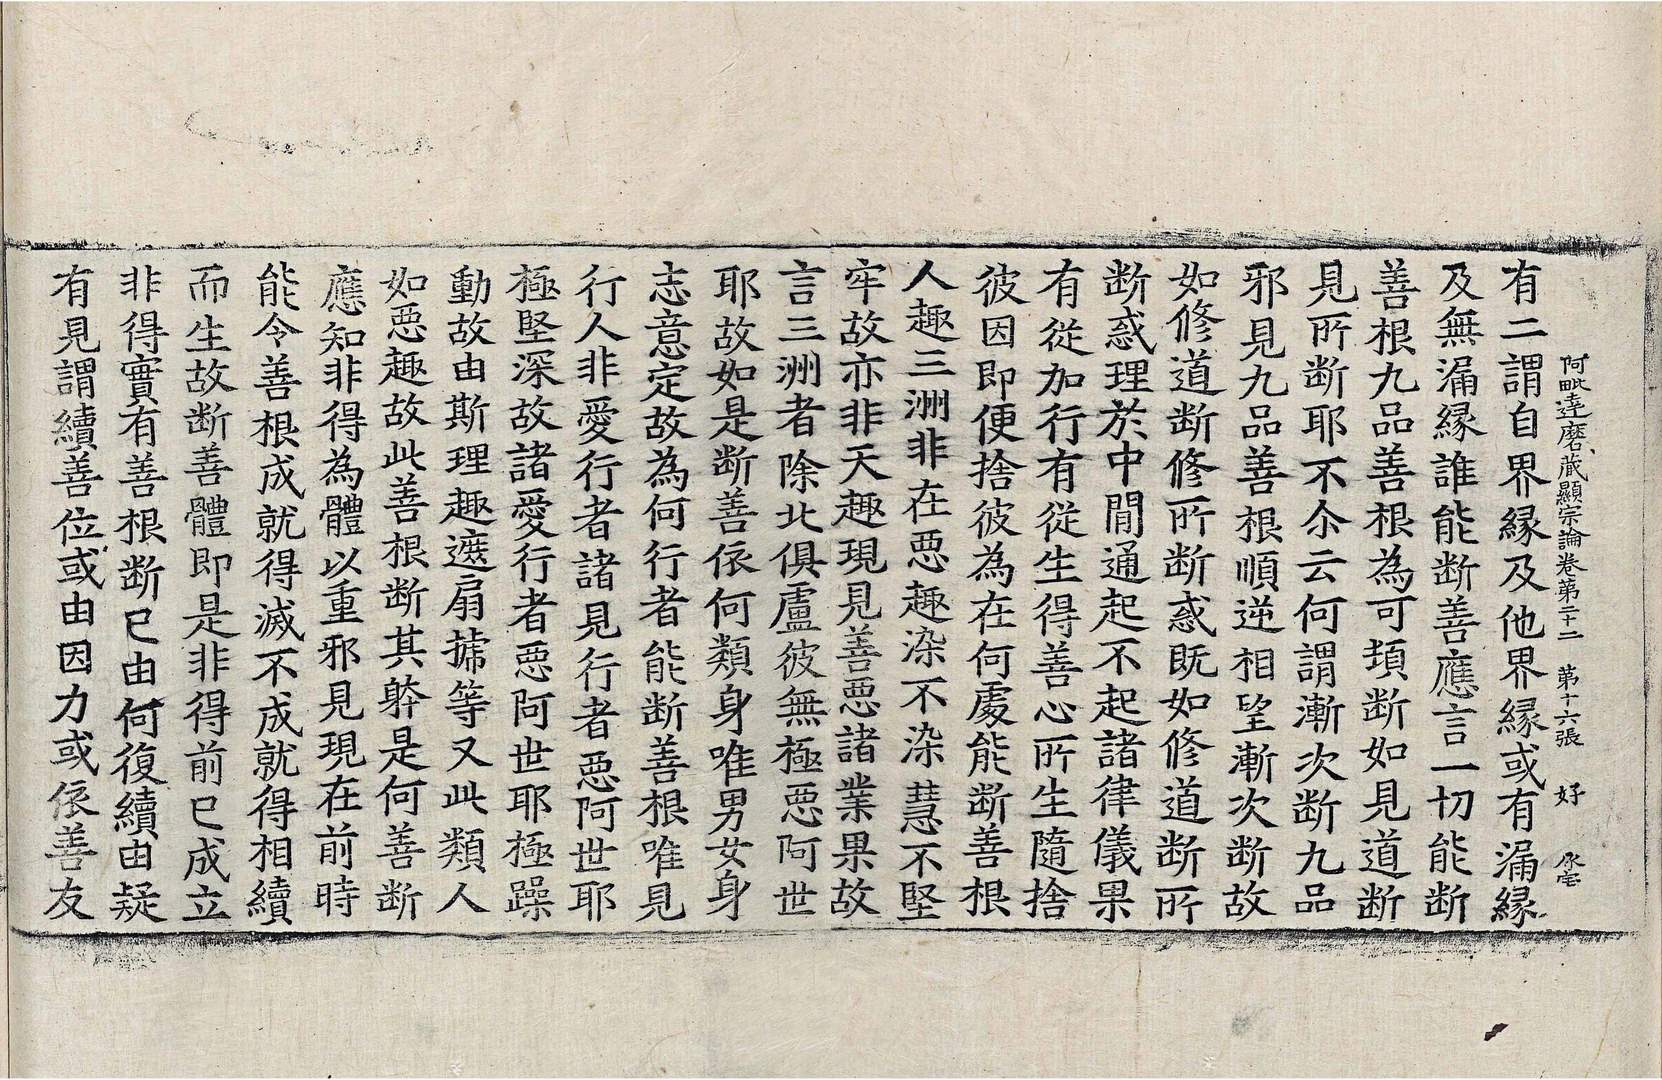 阿毗達磨藏顯宗論卷第二十二　第十六張　好
有二謂自界緣及他界緣或有漏緣
及無漏緣誰能断善應言一切能断
善根九品善根為可頓断如見道断
見所断耶不尒云何謂漸次断九品
邪見九品善根順逆相望漸次断故
如修道断修所断惑既如修道断所
断惑理於中間通起不起諸律儀果
有從加行有從生得善心所生隨捨
彼因即便捨彼為在何處能断善根
人趣三洲非在惡趣染不染慧不堅
牢故亦非天趣現見善惡諸業果故
言三洲者除北俱盧彼無極惡阿世
耶故如是断善依何類身唯男女身
志意定故為何行者能断善根唯見
行人非愛行者諸見行者惡阿世耶
極堅深故諸愛行者惡阿世耶極躁
動故由斯理趣遮扇搋等又此類人
如惡趣故此善根断其躰是何善断
應知非得為體以重邪見現在前時
能令善根成就得滅不成就得相續
而生故断善體即是非得前已成立
非得實有善根断已由何復續由疑
有見謂續善位或由因力或依善友